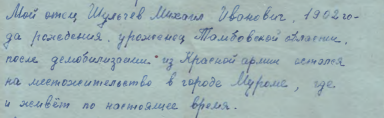 Мой отец Шульгев Михаил Иванович, 1902 го-
да рождения, уроженец Тамбовской области,
после демобилизации из Красной армии остался
на местожительство в городе Муроме, где
и живёт по настоящее время.